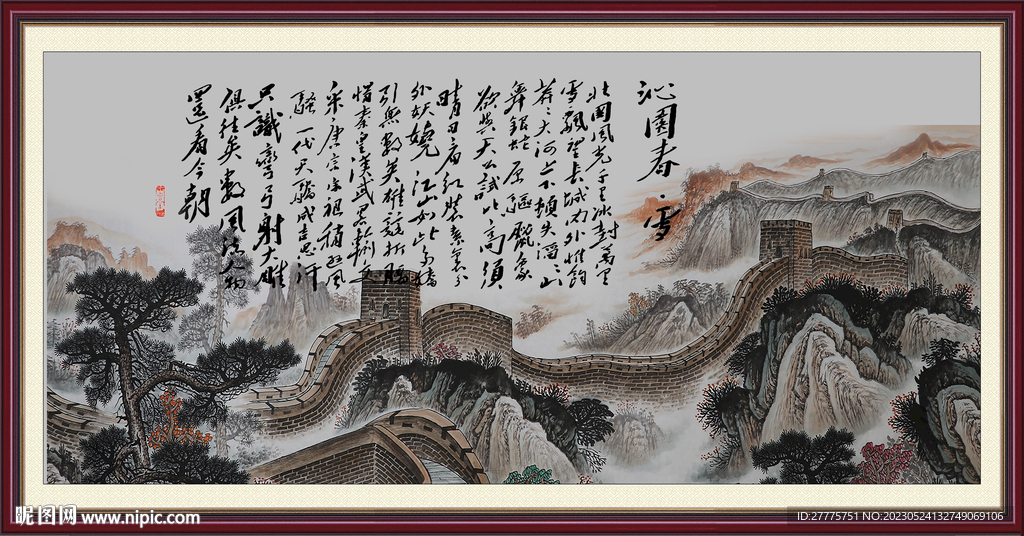 沁園春·雪
北國風光千里冰封萬里
雪飄望長城内外惟餘
莽々大河上下頓失滔々山
舞銀蛇原驅臘象
欲與天公試比高須
晴日看紅裝素裹分
外妖嬈江山如此多嬌
引無數英雄競折腰
惜秦皇漢武略輸文
采唐宗宋祖稍遜風
騷一代天驕成吉思汗
只識彎弓射大雕
俱往矣數風流人物
還看今朝
昵图网 www.nipic.com
ID:27775751 NO:20230524132749069106